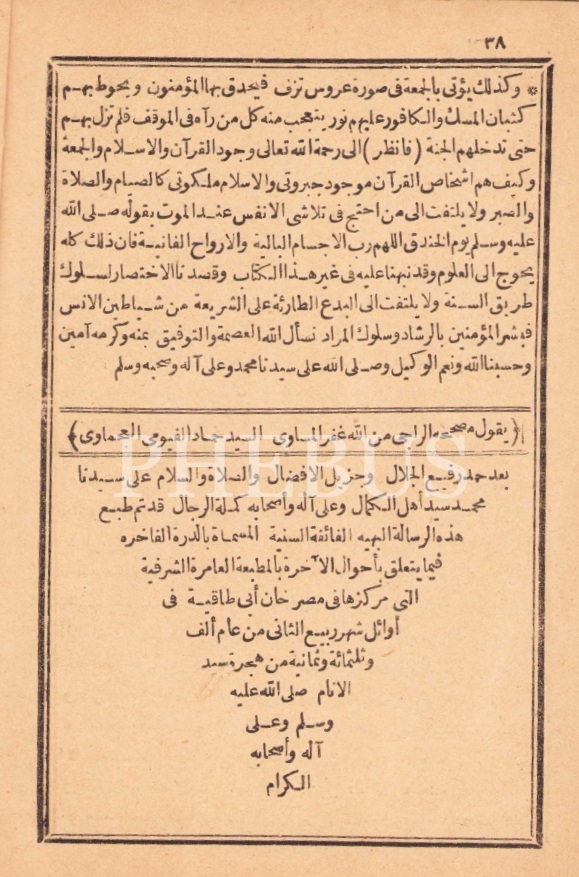 ٣٨
* وكذلك يؤتى بالجمعة فى صورة عروس تزف فيحدق بها المؤمنون ويحوط بهم
كثبان المسك والكافور عليهم نور يتعجب منه كل من رآه فى الموقف فلم تزل بهم
حتى تدخلهم الجنة (فانظر) الى رحمة الله تعالى وجود القرآن والاسلام والجمعة
وكيف هم اشخاص القرآن موجود جبروتى والاسلام ملكوتى كالصيام والصلاة
والصبر ولا يلتفت الى من احتج فى تلاشى الانفس عند الموت بقوله صلى الله
عليه وسلم يوم الخندق اللهم رب الاجسام البالية والارواح الفانية فان ذلك كله
يحوج الى العلوم وقد نبهنا عليه فى غير هذا الكتاب وقصدنا الاختصار لسلوك
طريق السنة ولا يلتفت الى البدع الطارئة على الشريعة من شياطين الانس
فبشر المؤمنين بالرشاد وسلوك المراد نسأل الله العصمة والتوفيق بمنه وكرمه آمين
وحسبنا الله ونعم الوكيل وصلى الله على سيدنا محمد وعلى آله وصحبه وسلم
﴿يقول مصححه الراجى من الله غفر المساوى السيد حماد الفيومى العجماوى﴾
بعد حمد رفيع الجلال وجزيل الافضال والصلاة والسلام على سيدنا
محمد سيد أهل الكمال وعلى آله وأصحابه كملة الرجال قد تم طبع
هذه الرسالة البهيه الفائقة السنية المسماة بالدرة الفاخره
فيما يتعلق بأحوال الآخرة بالمطبعة العامرة الشرفية
التى مركزها فى مصر خان أبى طاقية فى
أوائل شهر ربيع الثانى من عام ألف
وثلثمائة وثمانية من هجرة سيد
الانام صلى الله عليه
وسلم وعلى
آله وأصحابه
الكرام
PHEBUS